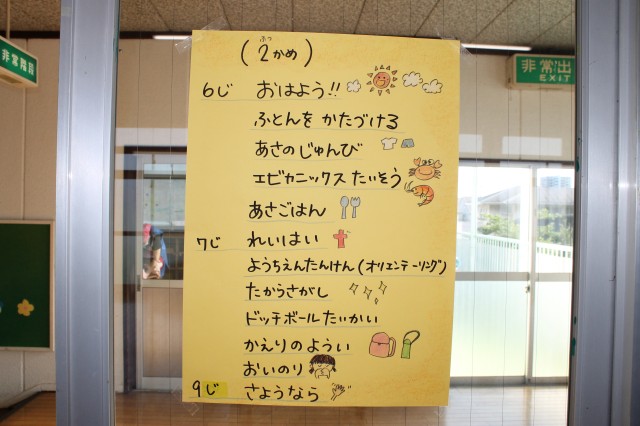 非常階段
非常出
EXIT
(2かめ)
ふつ
6じ おはよう!!
ふとんを かたづける
あさのじゅんび
エビカニックス たいそう
あさごはん
7じ れいはい
ようちえんたんけん(オリエンテーリング)
たからさがし
ドッチボールたいかい
かえりのようい
おいのり
9じ さようなら